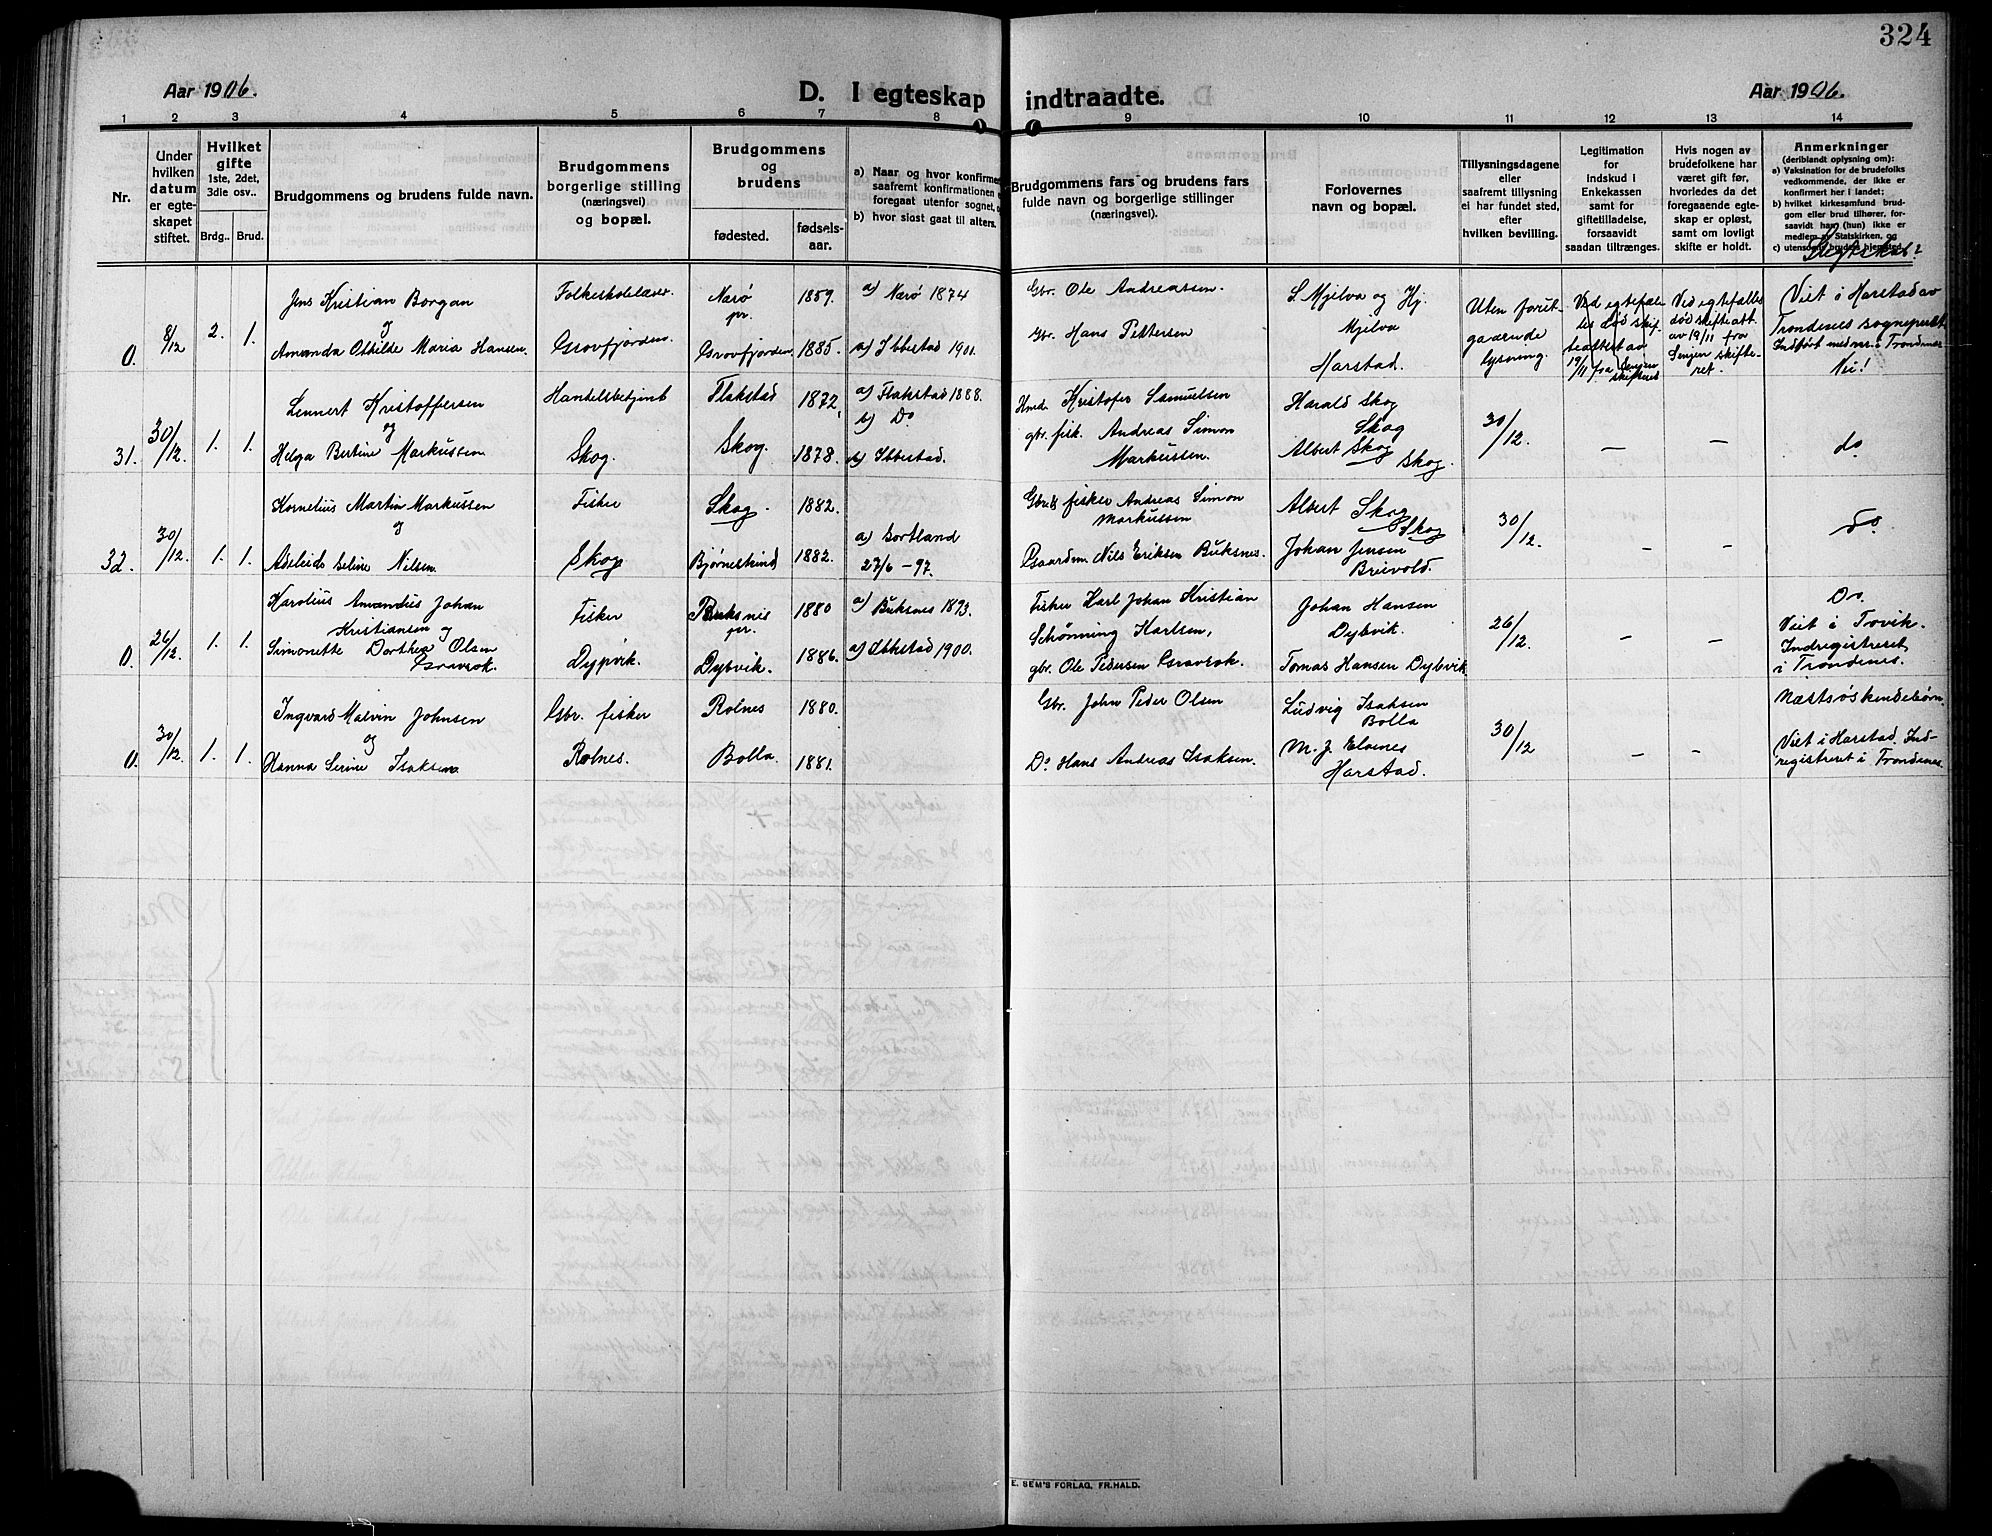 324
Aar 1906.
D. I egteskap indtraadte.
Aar 1906.
1 2 3 4 5 6 7 8 9 10 11 12 13 14
Nr.
Under hvilken datum er egteskapet stiftet.
Hvilket gifte 1ste, 2det, 3die osv..
Brdg.. Brud.
Brudgommens og brudens fulde navn.
Brudgommens borgerlige stilling (næringsvei) og bopæl.
Brudgommens og brudens
fødested. fødsels-aar.
a) Naar og hvor konfirmeret saafremt konfirmationen foregaat utenfor sognet,
b) hvor sidst gaat til alters.
Brudgommens fars og brudens fars fulde navn og borgerlige stillinger (næringsvei).
Forlovernes navn og bopæl.
Tillysningsdagene eller saafremt tillysning ei har fundet sted, efter hvilken bevilling.
Legitimation for indskud i Enkekassen samt for giftetilladelse, forsaavidt saadan tiltrænges.
Hvis nogen av brudefolkene har været gift før, hvorledes da det foregaaende egteskap er opløst, samt om lovligt skifte er holdt.
Anmerkninger
(deriblandt oplysning om):
a) Vaksination for de brudefolks vedkommende, der ikke er konfirmert her i landet;
b) hvilket kirkesamfund brudgom eller brud tilhører, forsaavidt han (hun) ikke er medlem av Statskirken, og
c) utensogns brudens hjemsted.
Slegtskab?
0. 8/12 2. 1.
Jens Kristian Borgan
og
Amanda Othilde Maria Hansen.
Folkeskolelærer.
Grovfjorden.
Nærø pr. 1859.
Grovfjorden. 1885.
a) Nærø 1874
a) Ibbestad 1901.
Gbr. Ole Andreassen.
Gbr. Hans Pettersen
S. Mjelva og Hj.
Mjelva
Harstad.
Uten forut-
gaaende
lysning.
Ved egtefæl-
les død skif-
teattest av
19/11 fra Senjen
skifteret
Ved egtefælles
død skifteatt.
av 19/11 fra
Senjen skifte-
ret.
Viet i Harstad av
Trondenes sogneprest
Indført med nr. i Trondenes
Nei!
31. 30/12. 1. 1.
Lennert Kristoffersen
og
Helga Bertine Markussen
Handelsbetjent
Skog.
Flakstad 1872.
Skog. 1878.
a) Flakstad 1888.
b) Do
b) Ibbestad.
Hmd. Kristofer Samuelsen
gbr. fisk. Andreas Simon
Markussen.
Harald Skog
Skog
Albert Skog
Skog.
30/12.
—
—
do
32. 30/12. 1. 1.
Kornelius Martin Markussen
og
Adeleide Seline Nilsen.
Fisker
Skog
Skog. 1882.
Bjørneskind 1882.
a) Sortland
27/6 - 97.
fisker Andreas Simon
Markussen
Gaardm. Nils Eriksen Buksnes.
Albert Skog
Skog
Johan Jensen
Breivold.
30/12.
-
-
Do
0. 26/12. 1. 1.
Karolius Amandus Johan
Kristiansen og
Simonette Dorthea Olsen
Gravrok.
Fisker
Dypvik.
Buksnes pr. 1880
Dybvik. 1886.
a) Buksnes 1893.
a) Ibbestad 1900.
Fisker Karl Johan Kristian
Schønning Karlsen,
gbr. Ole Pedersen Gravrok.
Johan Hansen
Dybvik.
Tomas Hansen Dybvik
26/12.
-
-
Do.
Viet i Tovik.
Indregistreret
i Trondenes.
0. 30/12. 1. 1.
Ingvard Malvin Johnsen
og
Hanna Serine Isaksen
Gbr. fisker
Rolnes.
Rolnes 1880.
Bolla. 1881.
Gbr. John Peder Olsen
Do Hans Andreas Isaksen.
Ludvig Isaksen
Bolla
M. J. Elvenes
Harstad.
30/12
-
-
Næstsøskendebørn.
Viet i Harstad. Ind-
registreret i Trondenes.
E. SEM'S FORLAG, FR.HALD.